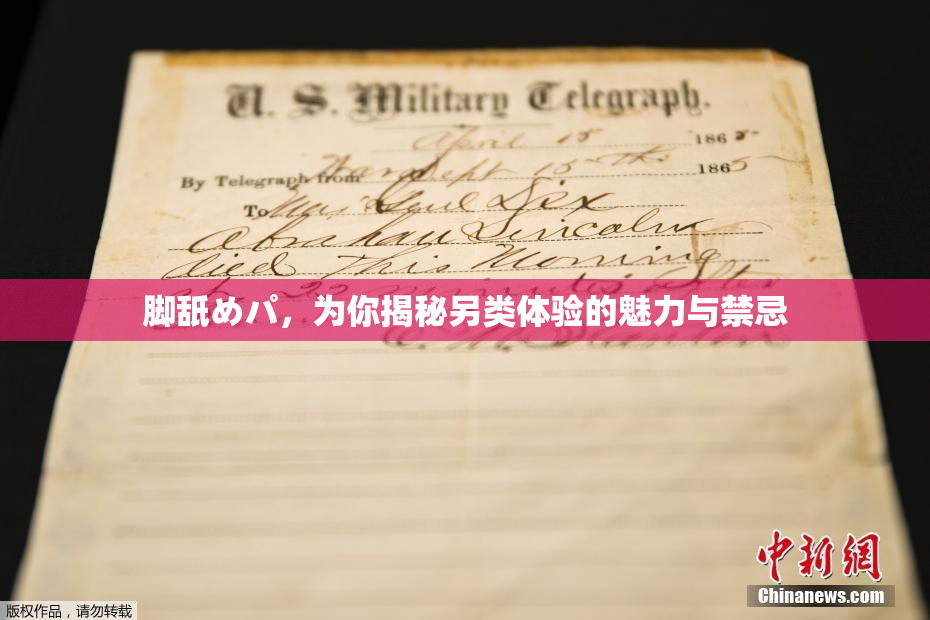 U. S. Military Telegraph.
April 15 1865
By Telegraph from War Dept 15th 1865
To Maj Genl Dix
Abraham Lincoln
died This Morning
at 22 minutes after
脚舐めパ，为你揭秘另类体验的魅力与禁忌
中新网
Chinanews.com
版权作品，请勿转载